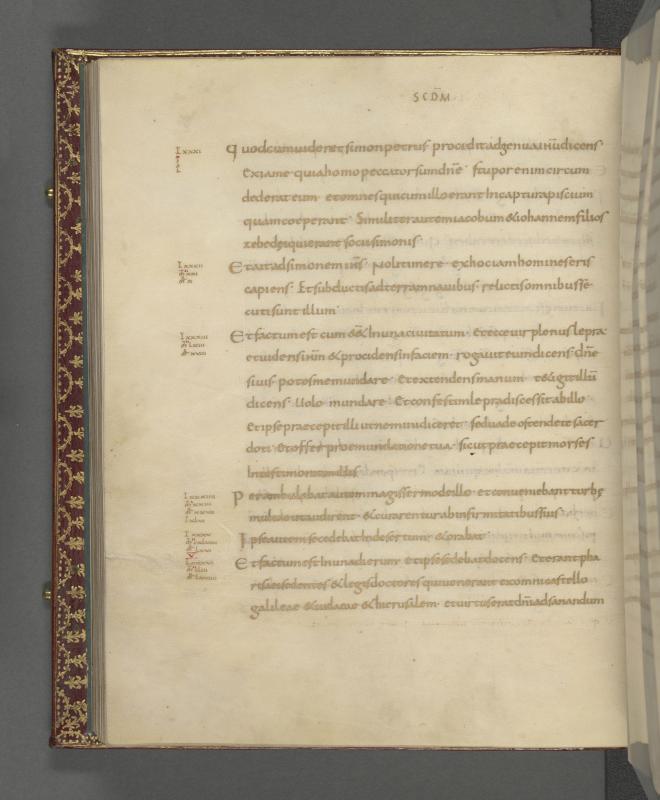 SCDM
Quod cum videret simon petrus procidit ad genua ihu dicens
Exi a me quia homo peccator sum dne Stupor enim circum
dederat eum et omnes qui cum illo erant In captura piscium
quam coeperant Similiter autem iacobum & iohannem filios
zebedei qui erant socii simonis
LXXXI
Et ait ad simonem ihs Noli timere ex hoc iam homines eris
capiens Et subductis ad terram navibus relictis omnibus se
cuti sunt illum
LXXXII
Et factum est cum e&& In una civitatum Et ecce vir plenus lepra
et videns ihm & procidens in faciem rogavit eum dicens dne
si vis potes me mundare Et extendens manum t&igit illu
dicens Uolo mundare Et confestim lepra discessit ab illo
Et ipse praecepit illi ut nemini diceret sed vade ostende te sacer
doti Et offer pro emundatione tua sicut praecepit moyses
In testimonium illis
LXXXIII
Perambulabat autem magis sermo de illo et conveniebant turbę
multae ut audirent & curarentur ab infirmitatibus suis
Ipse autem secedebat In desertum & orabat
Et factum est In una dierum et ipse sedebat docens Et erant pha
risaei sedentes & legis doctores qui venerant ex omni castello
galileae & iudaeae & hierusalem et virtus erat dni ad sanandum